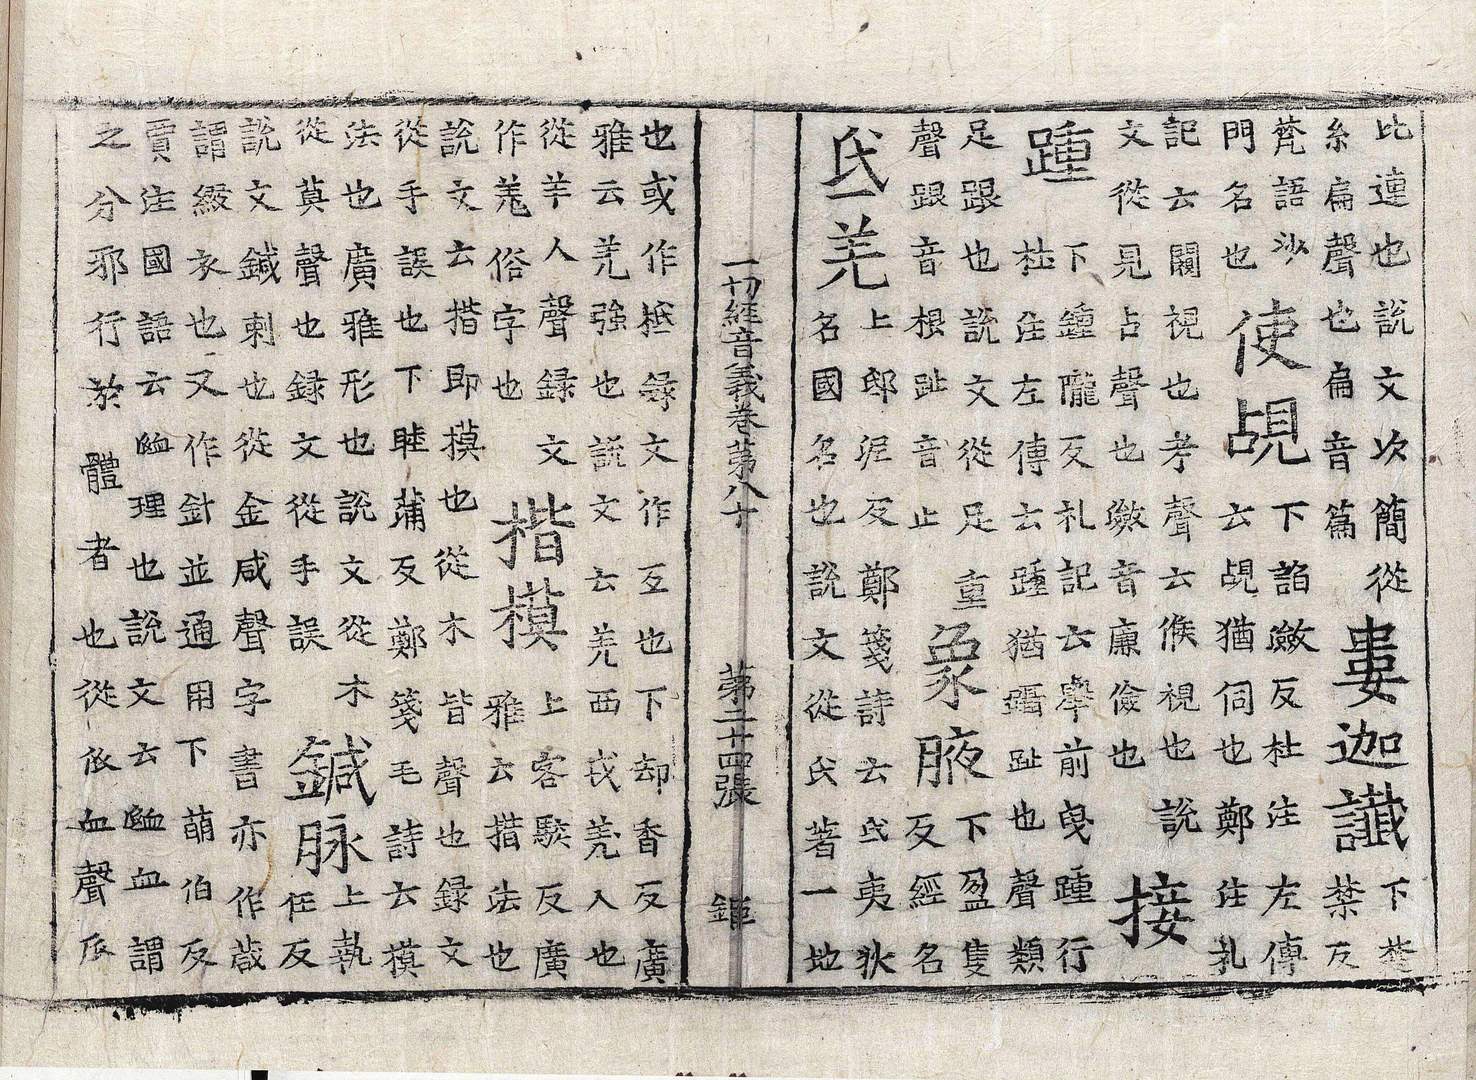 比連也說文次簡從
糸扁聲也扁音篇
婁迦讖
下楚
禁反
梵語沙
門名也
使覘
下諂斂反杜注左傳
云覘猶伺也鄭注礼
記云闚視也考聲云候視也說
文從見占聲也斂音廉儉也
接
踵
下鍾隴反礼記云舉前曳踵行
杜注左傳云踵猶躡趾也聲類
足跟也說文從足重
聲跟音根趾音止
彖腋
下盈隻
反經名
氐羌
上邸泥反鄭箋詩云氐夷狄
名國名也說文從氐著一地
一切經音義卷第八十
第二十四張
鉅
也或作録文作互也下却香反廣
雅云羌強也說文云羌西戎羌人也
從羊人聲録文
作羗俗字也
揩模
上客駭反廣
雅云揩法也
說文云揩即摸也從木皆聲也録文
從手誤也下睦蒲反鄭箋毛詩云模
法也廣雅形也說文從木
從莫聲也録文從手誤
鍼脉
上執
任反
說文鍼刺也從金咸聲字書亦作葴
謂綴衣也又作針並通用下萌伯反
賈注國語云衇理也說文云衇血謂
之分邪行於體者也從𠂢血聲𠂢